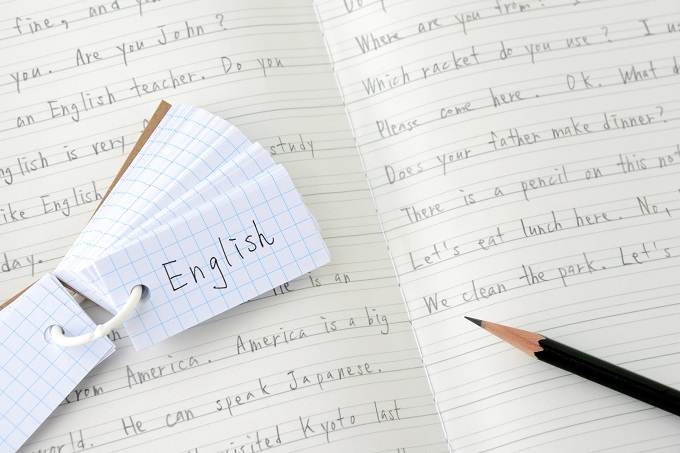 fine, and you
you. Are you John?
an English teacher. Do you
English is very study
like English
day.
He is an
from America. America is a big
world. He can speak Japanese.
visited Kyoto last
English
Do
Where are you from? I
Which racket do you use? I us
Please come here. OK. What d
Does your father make dinner?
There is a pencil on this not
Let's eat lunch here. No,
We clean the park. Let's